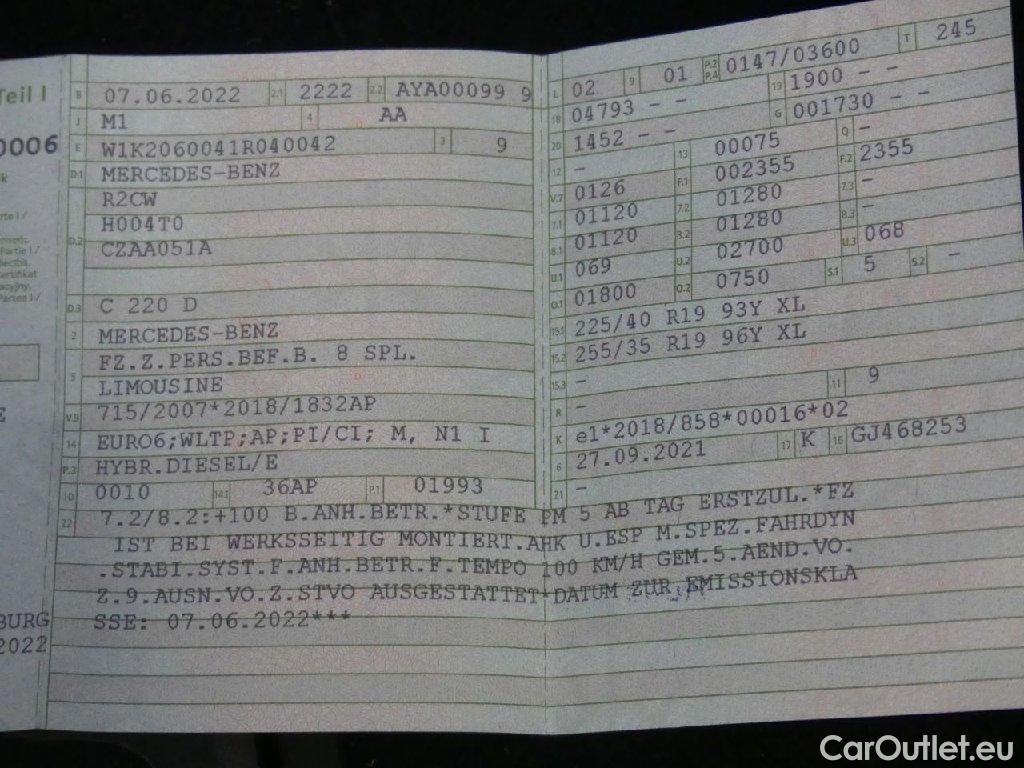 Teil I
0006
BURG
2022
B 07.06.2022 2.1 2222 2.2 AYA00099 9
J M1 4 AA
E W1K2060041R040042 3 9
D.1 MERCEDES-BENZ
R2CW
D.2 H004T0
CZAA051A
D.3 C 220 D
2 MERCEDES-BENZ
5 FZ.Z.PERS.BEF.B. 8 SPL.
LIMOUSINE
V.9 715/2007*2018/1832AP
14 EURO6;WLTP;AP;PI/CI; M, N1 I
P.3 HYBR.DIESEL/E
10 0010 14.1 36AP P.1 01993
L 02 9 01 P.2 P.4 0147/03600 T 245
18 04793 - - 19 1900 - -
20 1452 - - G 001730 - -
12 - 13 00075 Q -
V.7 0126 F.1 002355 F.2 2355
7.1 01120 7.2 01280 7.3 -
8.1 01120 8.2 01280 8.3 -
U.1 069 U.2 02700 U.3 068
O.1 01800 O.2 0750 S.1 5 S.2 -
15.1 225/40 R19 93Y XL
15.2 255/35 R19 96Y XL
15.3 -
R - 11 9
K e1*2018/858*00016*02
6 27.09.2021 17 K 16 GJ468253
21 -
22 7.2/8.2:+100 B.ANH.BETR.*STUFE FM 5 AB TAG ERSTZUL.*FZ
IST BEI WERKSSEITIG MONTIERT.AHK U.ESP M.SPEZ.FAHRDYN
.STABI.SYST.F.ANH.BETR.F.TEMPO 100 KM/H GEM.5.AEND.VO.
Z.9.AUSN.VO.Z.STVO AUSGESTATTET*DATUM ZUR EMISSIONSKLA
SSE: 07.06.2022***
CarOutlet.eu